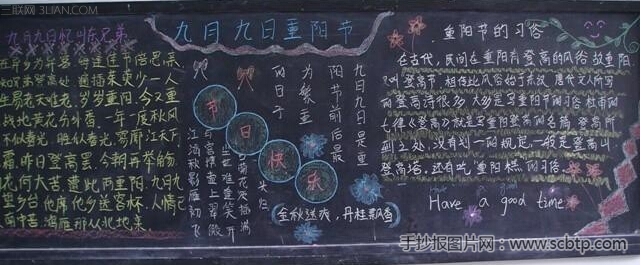 三联网 3LIAN.COM
九月九日忆山东兄弟
知兄弟登高处 遍插茱萸少一人
生易老天难老,岁岁重阳,今又重
战地黄花分外香。一年一度秋风
不似春光,胜似春光,寥廓江天万
霜 昨日登高罢,今朝再举觞
花何大苦,遭此两重阳 九月九
望乡台 他席他乡送客杯,人情已
南中苦 鸿雁那从北地来
九月九日重阳节
九月九日是重
阳节前后最
为繁重
的日子
节日快乐
江涵秋影雁初飞
与客携壶上翠微
金秋送爽,丹桂飘香
重阳节的习俗
在古代,民间在重阳有登高的风俗,故重阳
叫登高节 相传此风俗始于东汉 唐代文人所写
的登高诗很多 大多是写重阳节的习俗 杜甫的
七律《登高》就是写重阳登高的名篇 登高所
到之处,没有划一的规定 一般是登高山
登高塔 还有吃重阳糕的习俗
Have a good time
手抄报图片网:www.scbtp.com